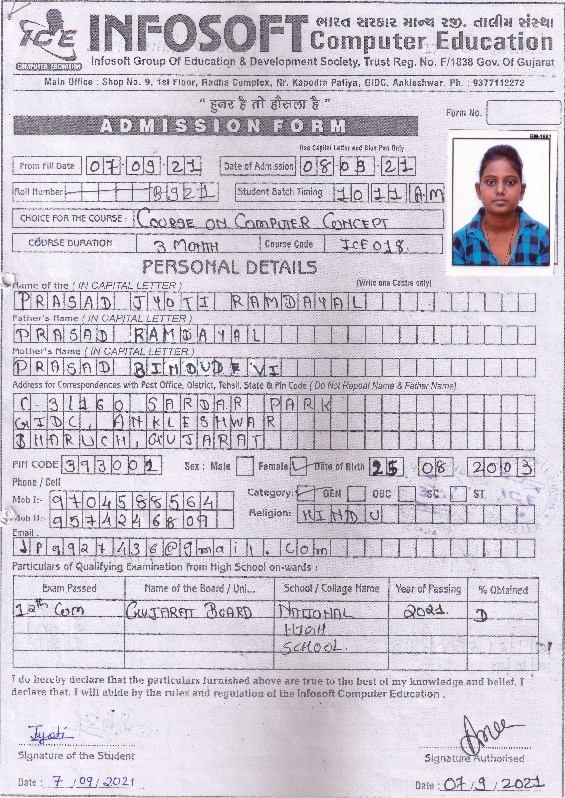 ICE
COMPUTER EDUCATION
INFOSOFT
ભારત સરકાર માન્ય રજી. તાલીમ સંસ્થા
Computer Education
Infosoft Group Of Education & Development Society, Trust Reg. No. F/1838 Gov. Of Gujarat
Main Office : Shop No. 9, 1st Floor, Radha Complex, Nr. Kapodra Patiya, GIDC, Ankleshwar. Ph. : 9377112272
" हुनर है तो हौसला है "
Form No.
ADMISSION FORM
Use Capital Letter and Blue Pen Only
From Fill Date 07-09-21 Date of Admission 08 09 21
Roll Number 0921 Student Batch Timing 10 11 AM
CHOICE FOR THE COURSE : COURSE ON COMPUTER CONCEPT
COURSE DURATION 3 MONTH Course Code ICE018.
PERSONAL DETAILS
Name of the ( IN CAPITAL LETTER ) (Write one Castre only)
PRASAD JYOTI RAMDAYAL
Father's Name ( IN CAPITAL LETTER )
PRASAD RAMDAYAL
Mother's Name ( IN CAPITAL LETTER )
PRASAD BINDUDEVI
Address for Correspondences with Post Office, District, Tehsil, State & Pin Code ( Do Not Repeat Name & Father Name)
C-31160 SARDAR PARK
GIDC, ANKLESHWAR
BHARUCH, GUJARAT
PIN CODE 393002 Sex : Male Female Date of Birth 25 08 2003
Phone / Cell
Mob I:- 9704588564 Category: GEN OBC SC ST
Mob II:- 9574246809 Religion: HINDU
Email :
JP9927436@gmail.com
Particulars of Qualifying Examination from High School on-wards :
Exam Passed Name of the Board / Uni... School / Collage Name Year of Passing % Obtained
12th Com GUJARAT BOARD NATIONAL 2021. D
HIGH
SCHOOL.
I do hereby declare that the particulars furnished above are true to the best of my knowledge and belief. I
declare that. I will abide by the rules and regulation of the Infosoft Computer Education .
Jyoti
Signature of the Student Signature Authorised
Date : 7 /09 /2021 Date : 07/9 /2021